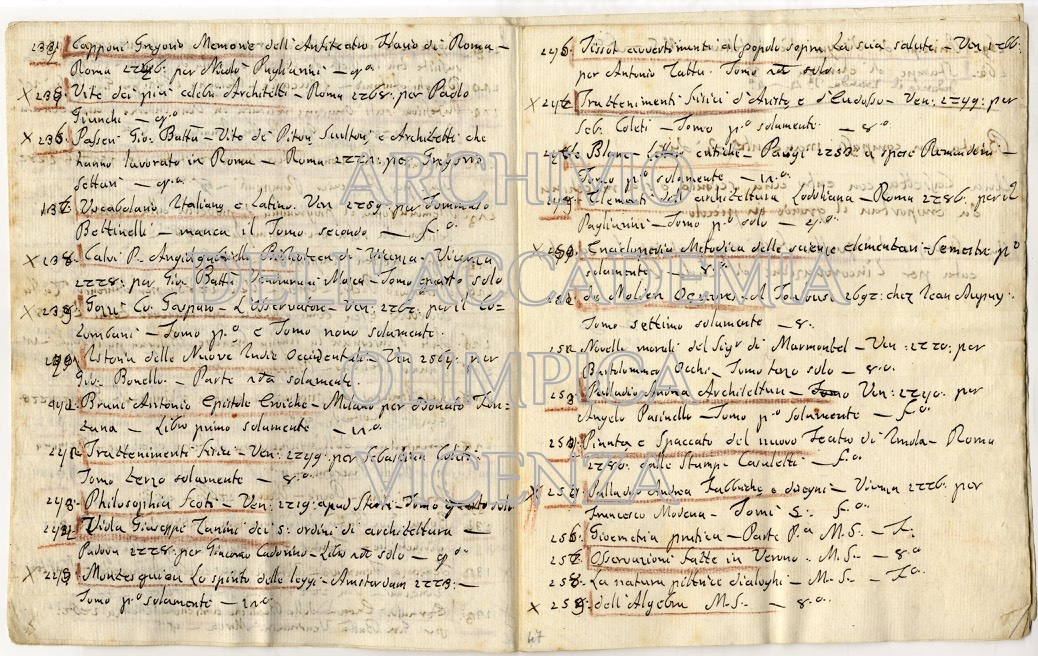 234. Capponi Gregorio Memorie dell'Anfiteatro Flavio di Roma –
Roma 1746. per Nicolò Pagliarini – 4.º
X 235. Vite dei più celebri Architetti – Roma 1768. per Paolo
Giunchi – 4.º
X 236. Passeri Gio: Batta – Vite de' Pitori, Scultori, e Architetti che
hanno lavorato in Roma – Roma 1772. per Gregorio
Settari – 4.º
237. Vocabolario Italiano, e Latino. Ven: 1757. per Tommaso
Bettinelli – manca il Tomo secondo – f.º
X 238. Calvi P. Angiolgabriello Biblioteca di Vicenza – Vicenza
1778. per Gio: Batta Vendramini Mosca – Tomo quarto solo
X 239. Gozzi Co: Gasparo – L'Osservatore – Ven: 1767. per il Co-
lombani – Tomo p.º e Tomo nono solamente.
Istoria delle Nuove Indie Occidentali – Ven: 1564. per
Gio: Bonello – Parte solamente.
241. Bruni Antonio Epistole Eroiche – Milano per Donato Fon-
tana – Libro primo solamente – 12.º
242. Trattenimenti Fisici – Ven: 1749. per Sebastian Coleti –
Tomo terzo solamente – 8.º
243. Philosophia Scoti – Ven: 1719. apud – Tomo quarto solo
244. Viola Giuseppe Zanini dei 5: ordini di architettura –
Padova 1778. per Giacomo Cadorino – Libro solo – 4.º
X 245. Montesquieu Lo spirito delle leggi – Amsterdam 1773. –
Tomo p.º solamente – 12.º
246. Tissot avvertimenti al popolo sopra la sua salute – Ven: 1766.
per Antonio Zatta. Tomo solo
X 247. Trattenimenti Fisici d'Aristo, e d'Eudosso – Ven: 1749. per
Seb: Coleti – Tomo p.º solamente – 8.º
248. Le Blanc – Parigi 1751. a spese Remondini –
Tomo p.º solamente – 12.º
249. Elementi dell'architettura Lodoliana – Roma 1786. per il
Pagliarini – Tomo p.º solo – 4.º
X 250. Enciclopedia Metodica delle scienze elementari – Semestre p.º
solamente – 8.º
251. de Moliere Oeuvres – A Toulouse 1697. chez Jean Dupuy.
Tomo settimo solamente – 8.º
252. Novelle morali del Sigr. di Marmontel – Ven: 1770. per
Bartolommeo Occhi – Tomo terzo solo – 8.º
253. Palladio Andrea Architettura – Ven: 1740. per
Angelo Pasinello – Tomo p.º solamente – f.º
254. Pianta e Spaccato del nuovo Teatro di Imola – Roma
1780. dalle Stampe Casaletti – f.º
X 255. Palladio Andrea Fabbriche e disegni – Vicenza 1776. per
Francesco Modena – Tomi 5. f.º
256. Giometria pratica – Parte P.ª M.S. – f.
257. Osservazioni fatte in Verona – M.S. – 8.º
258. La natura dialoghi – M.S. – f.º
X 259. dell'Algebra M.S. – 8.º
47
ARCHIVIO
DELL'ACCADEMIA
OLIMPICA
VICENZA